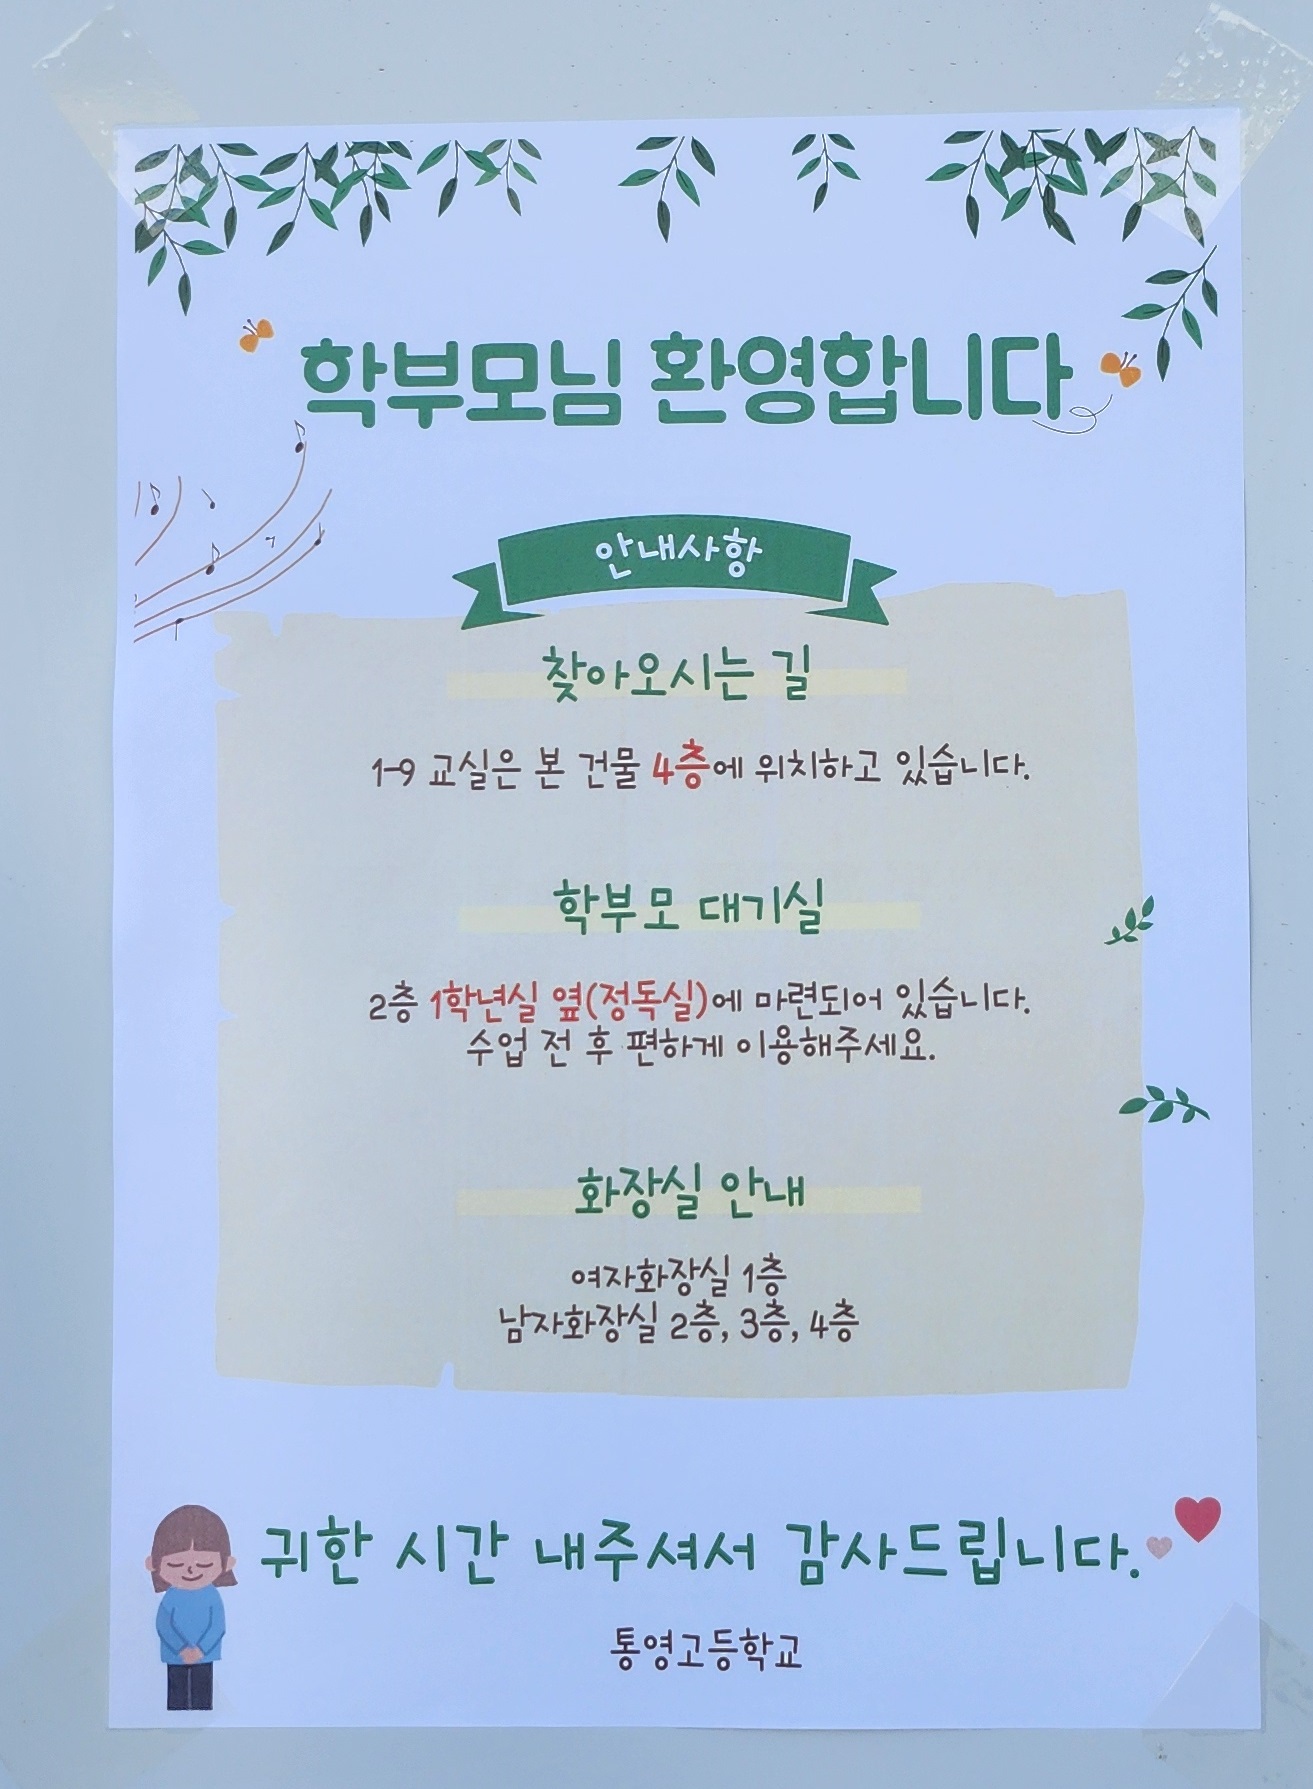 학부모님 환영합니다
안내사항
찾아오시는 길
1-9 교실은 본 건물 4층에 위치하고 있습니다.
학부모 대기실
2층 1학년실 옆(정독실)에 마련되어 있습니다.
수업 전 후 편하게 이용해주세요.
화장실 안내
여자화장실 1층
남자화장실 2층, 3층, 4층
귀한 시간 내주셔서 감사드립니다.
통영고등학교